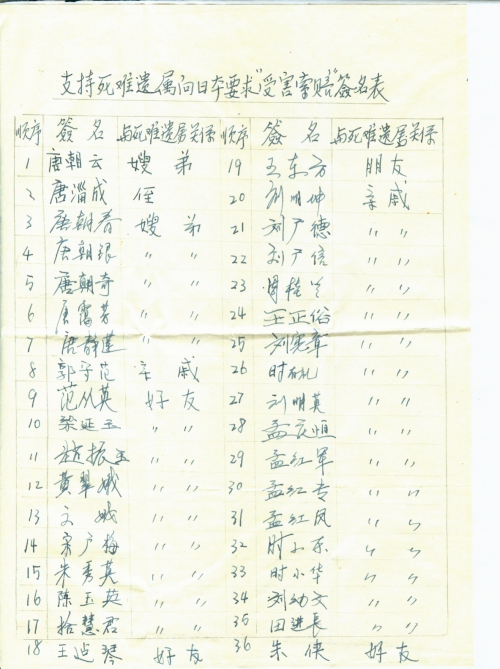 支持死难遗属"向日本要求"受害索赔"签名表
顺序 签名 与死难遗属关系 顺序 签名 与死难遗属关系
1 唐朝云 嫂弟 19 王东方 朋友
2 唐淄成 侄 20 刘明坤 亲戚
3 唐朝春 嫂弟 21 刘广德 〃 〃
4 唐朝银 〃 〃 22 刘广信 〃 〃
5 唐朝奇 〃 〃 23 桂兰 〃 〃
6 唐雪芳 〃 〃 24 王正俗 〃 〃
7 唐静莲 〃 〃 25 刘宪章 〃 〃
8 郭守范 亲戚 26 时 〃 〃
9 范从英 好友 27 刘明英 〃 〃
10 梁延玉 〃 〃 28 孟庆恒 〃 〃
11 赵振玉 〃 〃 29 孟红军 〃 〃
12 黄翠娥 〃 〃 30 孟红专 〃 〃
13 文娥 〃 〃 31 孟红凤 〃 〃
14 宋广梅 〃 〃 32 时小东 〃 〃
15 朱秀英 〃 〃 33 时小华 〃 〃
16 陈玉英 〃 〃 34 刘幼文 〃 〃
17 慧君 〃 〃 35 田进长 〃 〃
18 王琴 好友 36 朱侠 好友